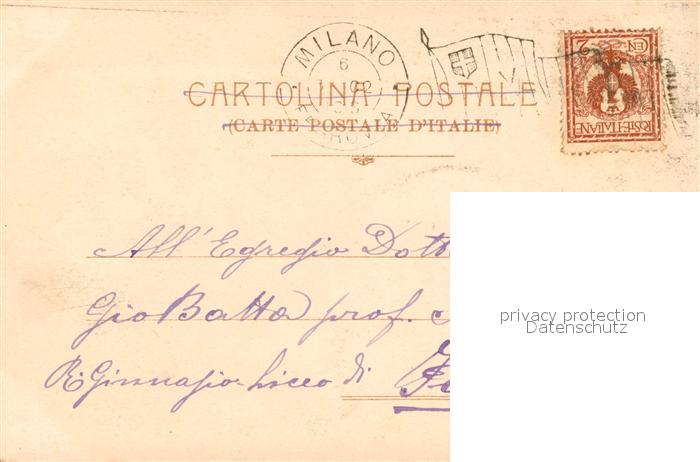 MILANO
6
CARTOLINA POSTALE
(CARTE POSTALE D'ITALIE)
CEN 2
POSTE ITALIANE
All' Egregio Dott
GioBatta prof.
R. Ginnasio-Liceo di
privacy protection
Datenschutz